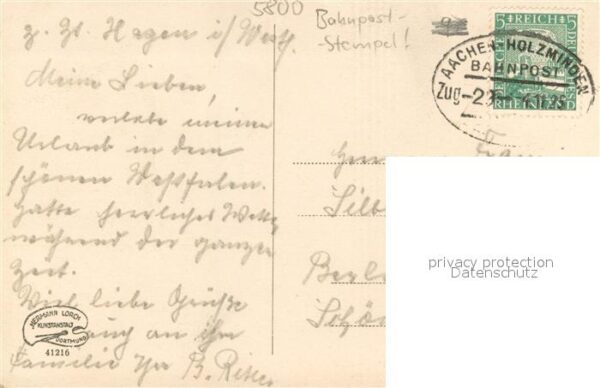 5800
Bahnpost-
-Stempel!
5 REICH 5
RHEINLAND
AACHEN-HOLZMINDEN
BAHNPOST
Zug 11.25
z. Zt. Hagen i/ Westf.
Meine Lieben,
verlebe meinen
Urlaub in dem
schönen Westfalen.
Hatte herrliches Wetter
während der ganzen
Zeit.
Viel liebe Grüsse
auch an ihre
Familie Ihr B.
HERMANN LORCH
KUNSTANSTALT
DORTMUND
41216
Herrn
Silb
Berli
Schön
privacy protection
Datenschutz